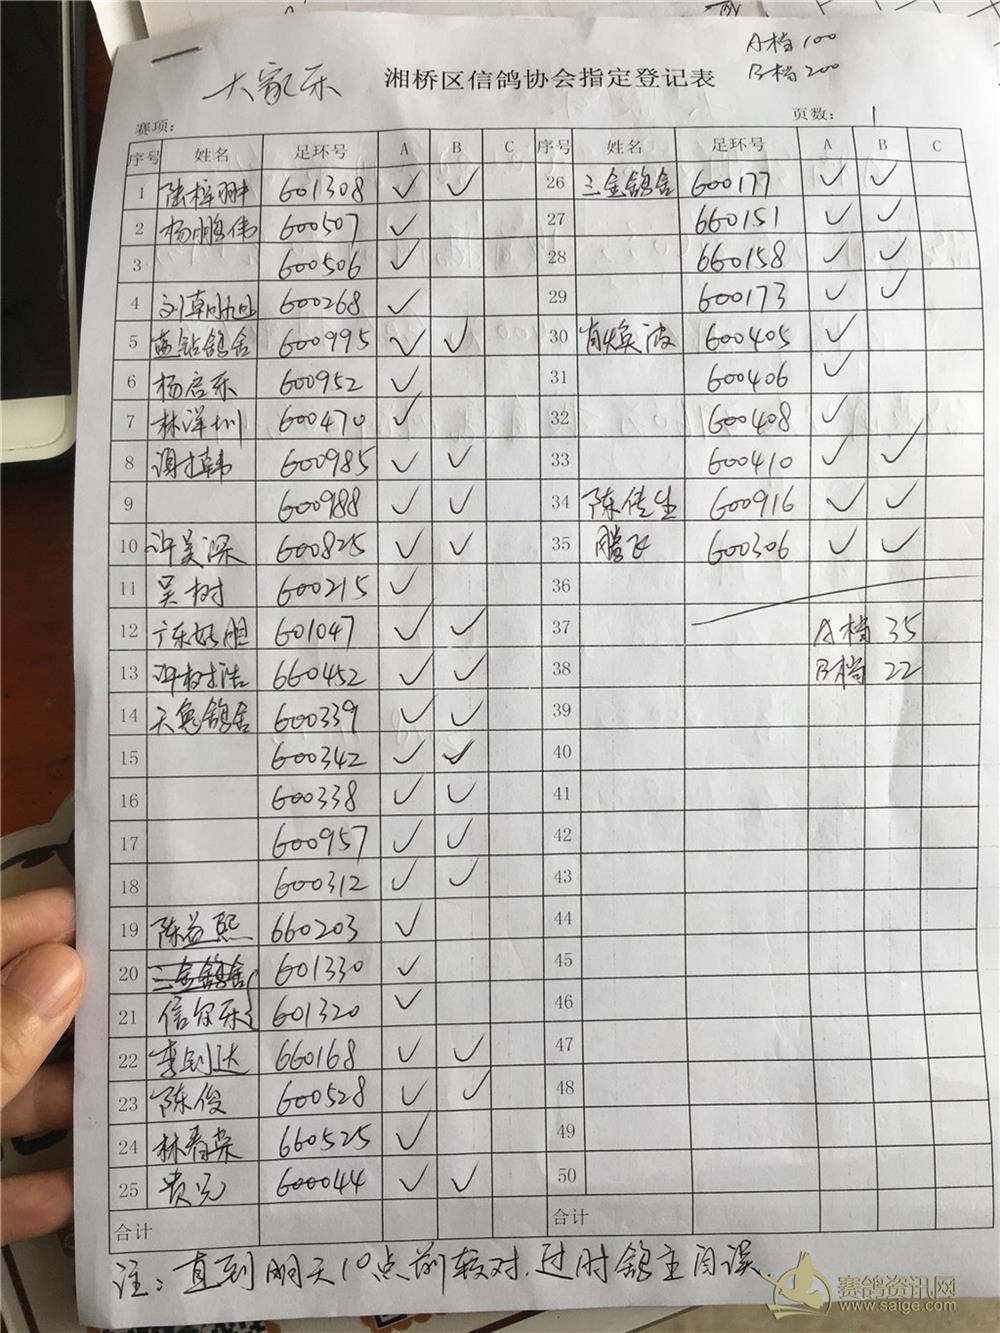 A档 100
B档 200
大家乐 湘桥区信鸽协会指定登记表
赛项: 页数: 1
序号 姓名 足环号 A B C 序号 姓名 足环号 A B C
1 陈梓翀 601308 ✓ ✓ 26 三金鸽舍 600177 ✓ ✓
2 杨鹏伟 600507 ✓ 27 660151 ✓ ✓
3 600506 ✓ 28 660158 ✓ ✓
4 刘朝旭 600268 ✓ 29 600173 ✓ ✓
5 蓝钻鸽舍 600995 ✓ ✓ 30 肖焕波 600405 ✓
6 杨启乐 600952 ✓ 31 600406 ✓
7 林泽圳 600470 ✓ 32 600408 ✓
8 600985 ✓ ✓ 33 600410 ✓ ✓
9 600988 ✓ ✓ 34 陈传生 600916 ✓ ✓
10 许美深 600825 ✓ ✓ 35 腾飞 600306 ✓ ✓
11 吴树 600215 ✓ 36
12 601047 ✓ ✓ 37 A档 35
13 许树浩 660452 ✓ ✓ 38 B档 22
14 鸽舍 600339 ✓ ✓ 39
15 600342 ✓ ✓ 40
16 600338 ✓ ✓ 41
17 600957 ✓ ✓ 42
18 600312 ✓ ✓ 43
19 陈益熙 660203 ✓ 44
20 三金鸽舍 601330 ✓ 45
21 信尔乐 601320 ✓ 46
22 李钊达 660168 ✓ ✓ 47
23 陈俊 600528 ✓ ✓ 48
24 林春荣 660525 ✓ 49
25 贵元 600044 ✓ ✓ 50
合计 合计
注：直到明天10点前较对，过时鸽主自误
赛鸽资讯网
www.saige.com